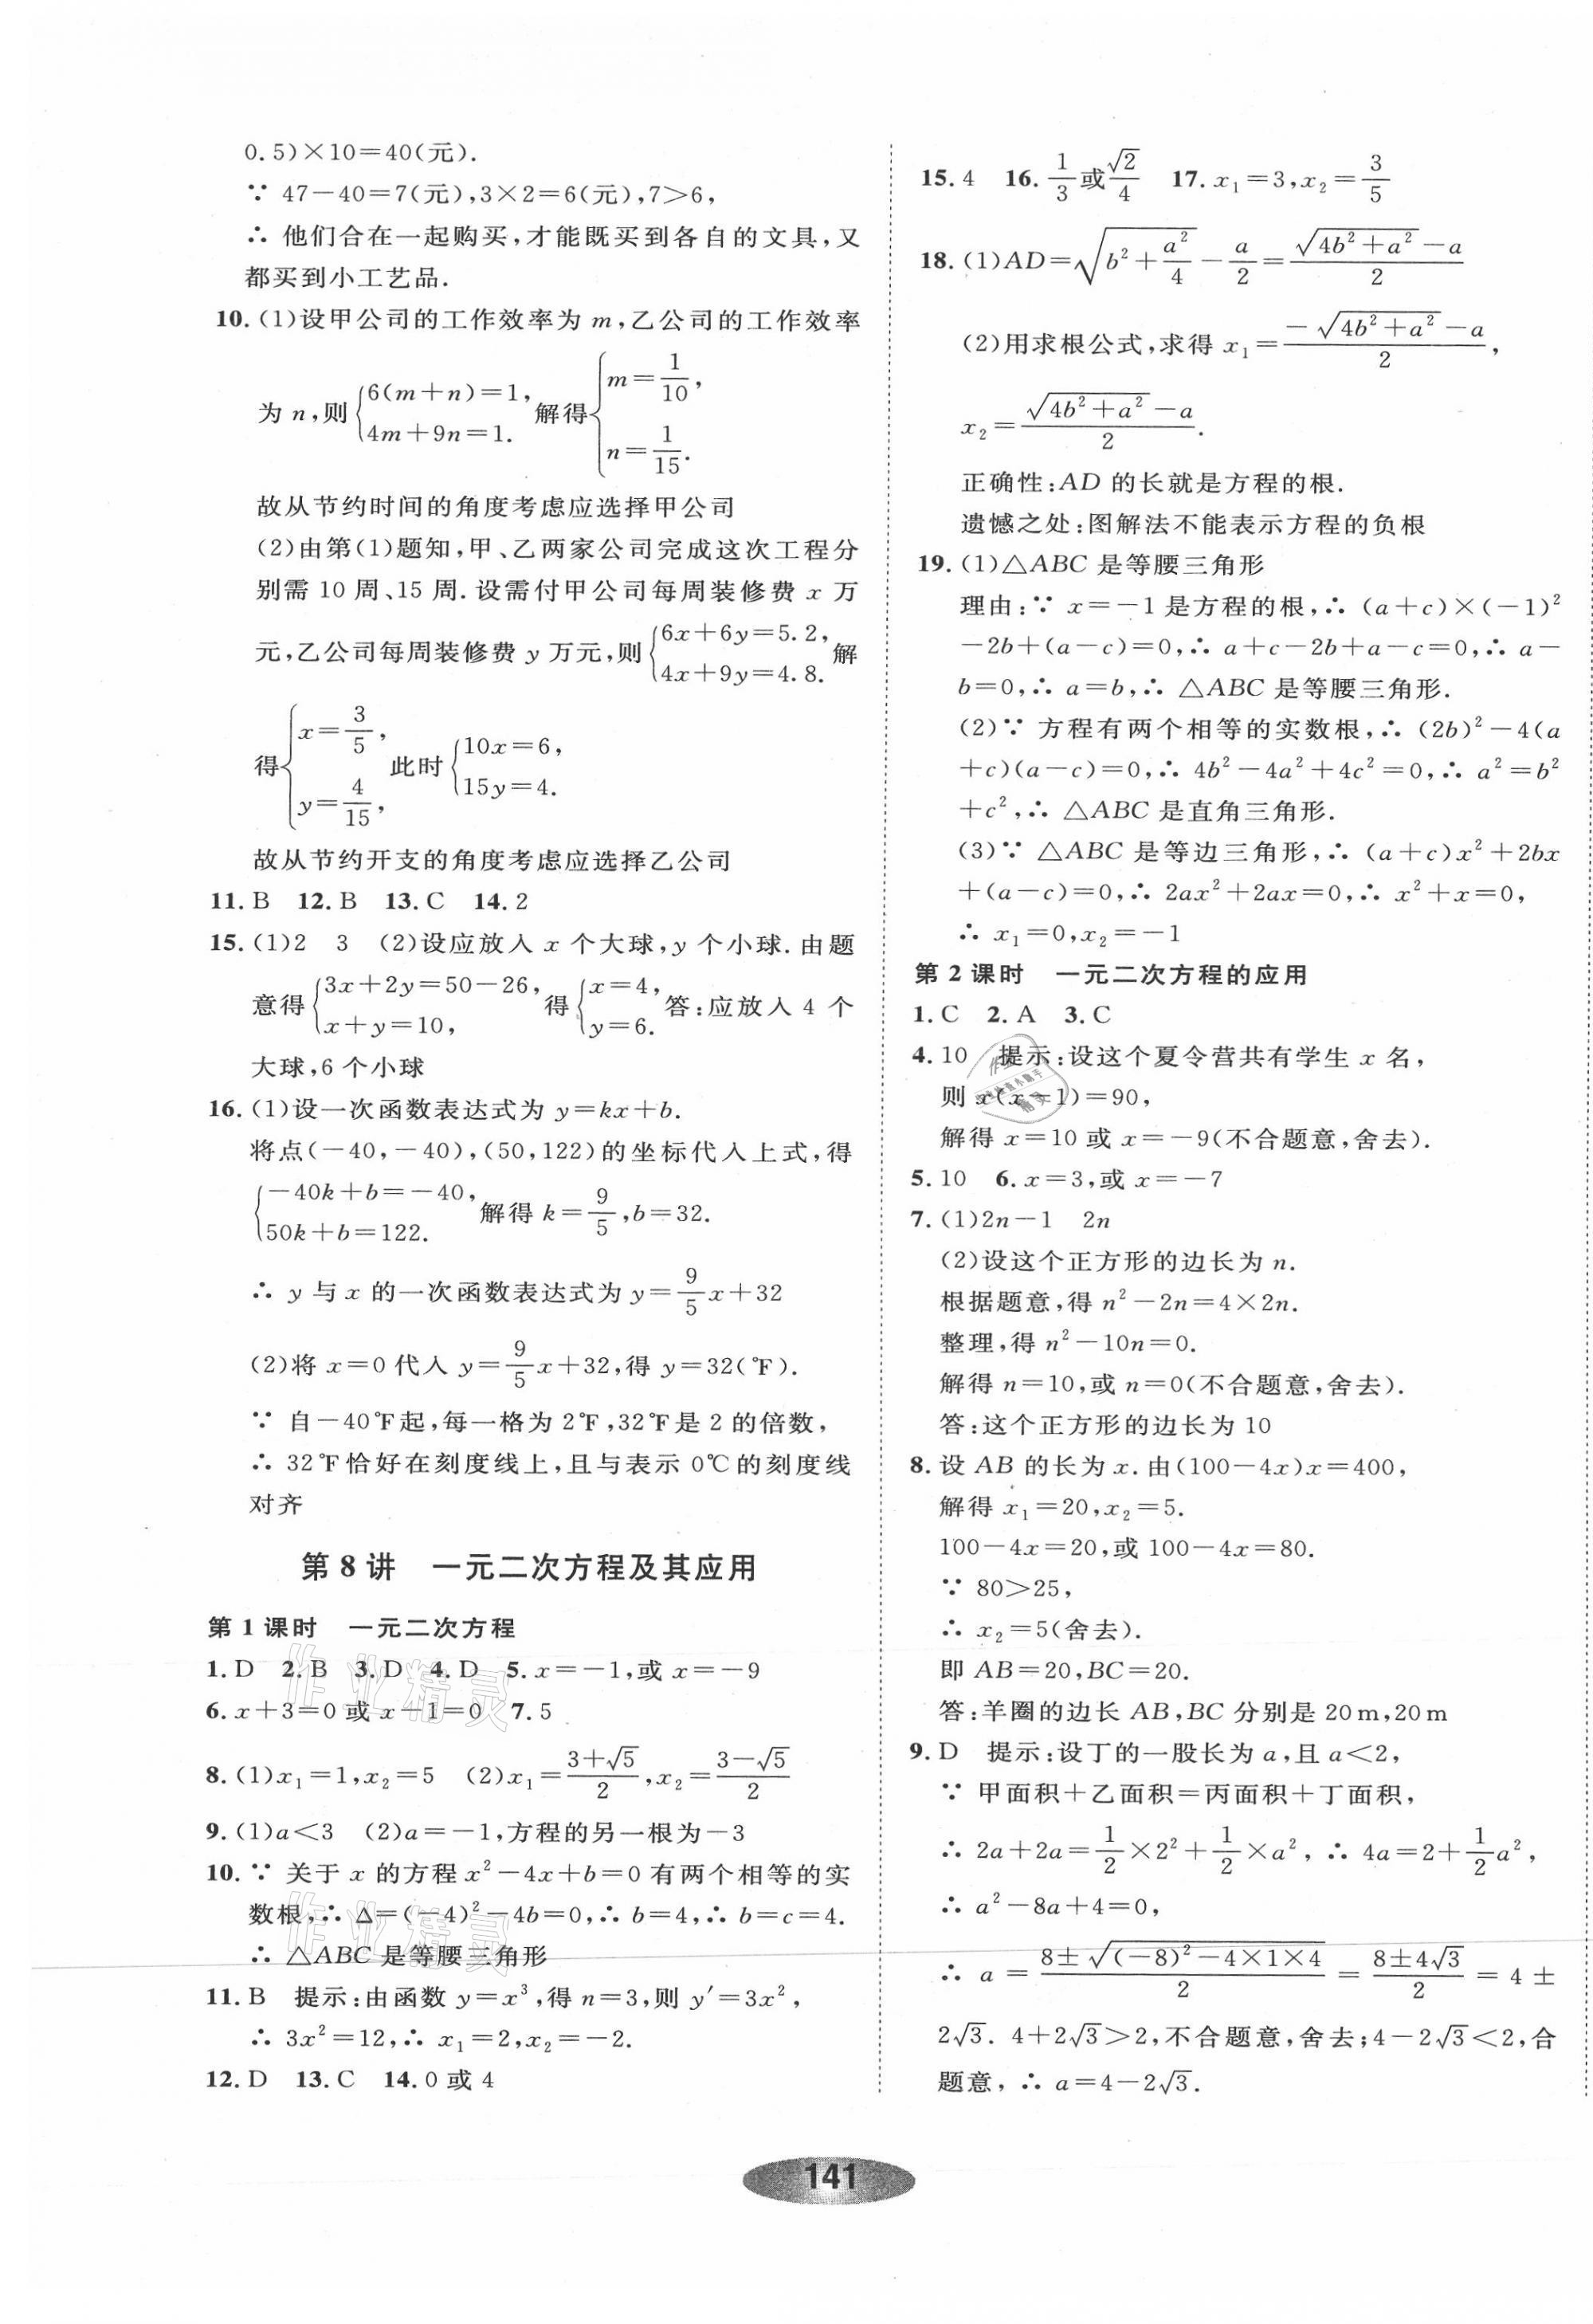 0.5)×10=40(元).
∵ 47-40=7(元),3×2=6(元),7>6,
∴ 他们合在一起购买,才能既买到各自的文具,又
都买到小工艺品.
10. (1)设甲公司的工作效率为 m,乙公司的工作效率
为 n,则{6(m+n)=1, 4m+9n=1. 解得{m=1/10, n=1/15.
故从节约时间的角度考虑应选择甲公司
(2)由第(1)题知,甲、乙两家公司完成这次工程分
别需 10 周、15 周.设需付甲公司每周装修费 x 万
元,乙公司每周装修费 y 万元,则{6x+6y=5.2, 4x+9y=4.8. 解
得{x=3/5, y=4/15, 此时{10x=6, 15y=4.
故从节约开支的角度考虑应选择乙公司
11. B 12. B 13. C 14. 2
15. (1)2 3 (2)设应放入 x 个大球,y 个小球.由题
意得{3x+2y=50-26, x+y=10, 得{x=4, y=6. 答:应放入 4 个
大球,6 个小球
16. (1)设一次函数表达式为 y=kx+b.
将点(-40,-40),(50,122)的坐标代入上式,得
{-40k+b=-40, 50k+b=122. 解得 k=9/5,b=32.
∴ y 与 x 的一次函数表达式为 y=9/5x+32
(2)将 x=0 代入 y=9/5x+32,得 y=32(℉).
∵ 自-40℉起,每一格为 2℉,32℉是 2 的倍数,
∴ 32℉恰好在刻度线上,且与表示 0℃的刻度线
对齐
第 8 讲 一元二次方程及其应用
第 1 课时 一元二次方程
1. D 2. B 3. D 4. D 5. x=-1,或 x=-9
6. x+3=0 或 x-1=0 7. 5
8. (1)x₁=1,x₂=5 (2)x₁=(3+√5)/2,x₂=(3-√5)/2
9. (1)a<3 (2)a=-1,方程的另一根为-3
10. ∵ 关于 x 的方程 x²-4x+b=0 有两个相等的实
数根,∴ Δ=(-4)²-4b=0,∴ b=4,∴ b=c=4.
∴ △ABC 是等腰三角形
11. B 提示:由函数 y=x³,得 n=3,则 y′=3x²,
∴ 3x²=12,∴ x₁=2,x₂=-2.
12. D 13. C 14. 0 或 4
15. 4 16. 1/3或√2/4 17. x₁=3,x₂=3/5
18. (1)AD=√(b²+a²/4)-a/2=(√(4b²+a²)-a)/2
(2)用求根公式,求得 x₁=(-√(4b²+a²)-a)/2,
x₂=(√(4b²+a²)-a)/2.
正确性:AD 的长就是方程的根.
遗憾之处:图解法不能表示方程的负根
19. (1)△ABC 是等腰三角形
理由:∵ x=-1 是方程的根,∴ (a+c)×(-1)²
-2b+(a-c)=0,∴ a+c-2b+a-c=0,∴ a-
b=0,∴ a=b,∴ △ABC 是等腰三角形.
(2)∵ 方程有两个相等的实数根,∴ (2b)²-4(a
+c)(a-c)=0,∴ 4b²-4a²+4c²=0,∴ a²=b²
+c²,∴ △ABC 是直角三角形.
(3)∵ △ABC 是等边三角形,∴ (a+c)x²+2bx
+(a-c)=0,∴ 2ax²+2ax=0,∴ x²+x=0,
∴ x₁=0,x₂=-1
第 2 课时 一元二次方程的应用
1. C 2. A 3. C
4. 10 提示:设这个夏令营共有学生 x 名,
则 x(x-1)=90,
解得 x=10 或 x=-9(不合题意,舍去).
5. 10 6. x=3,或 x=-7
7. (1)2n-1 2n
(2)设这个正方形的边长为 n.
根据题意,得 n²-2n=4×2n.
整理,得 n²-10n=0.
解得 n=10,或 n=0(不合题意,舍去).
答:这个正方形的边长为 10
8. 设 AB 的长为 x.由(100-4x)x=400,
解得 x₁=20,x₂=5.
100-4x=20,或 100-4x=80.
∵ 80>25,
∴ x₂=5(舍去).
即 AB=20,BC=20.
答:羊圈的边长 AB,BC 分别是 20 m,20 m
9. D 提示:设丁的一股长为 a,且 a<2,
∵ 甲面积+乙面积=丙面积+丁面积,
∴ 2a+2a=1/2×2²+1/2×a²,∴ 4a=2+1/2a²,
∴ a²-8a+4=0,
∴ a=(8±√((-8)²-4×1×4))/2=(8±4√3)/2=4±
2√3. 4+2√3>2,不合题意,舍去;4-2√3<2,合
题意,∴ a=4-2√3.
作业精灵
作业精灵
141